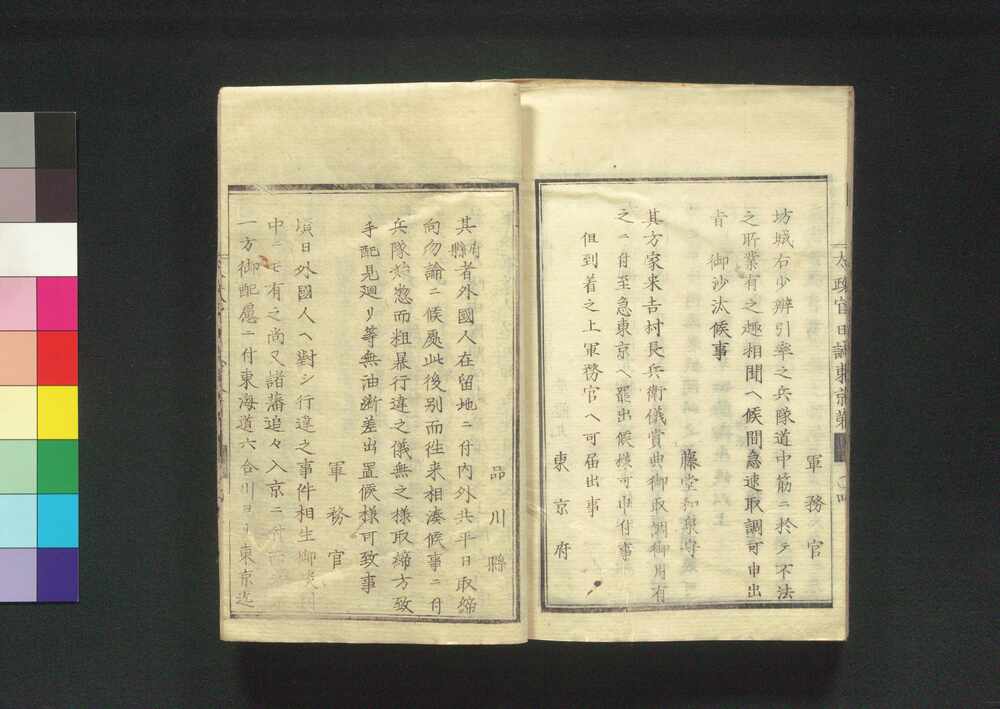 軍務官
坊城右少辨引率之兵隊道中筋ニ於テ不法
之所業有之趣相聞ヘ候間急速取調可申出
旨御沙汰候事
藤堂和泉守
其方家来吉村長兵衛儀賞典御取調御用有
之ニ付至急東京ヘ罷出候様可申付事
但到着之上軍務官ヘ可届出事
東京府
品川縣
其府縣者外國人在留地ニ付内外共平日取締
向勿論ニ候處此後別而往来相湊候事ニ付
兵隊 惣而粗暴行違之儀無之様取締方致
手配見廻リ等無油断差出置候様可致事
軍務官
頃日外國人ヘ對シ行違之事件相生御
中ニモ有之尚又諸藩追々入京ニ付
一方御配慮ニ付東海道六合川ヨリ東京迄
太政官日誌東京第